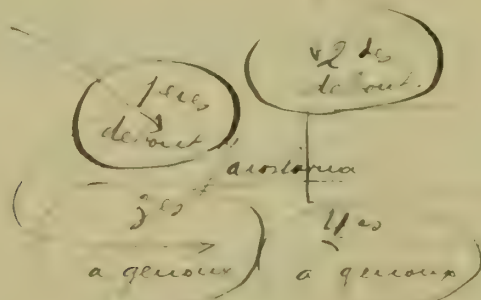 1eres
debout
2 des
debout
3es
a genoux
4es
a genoux